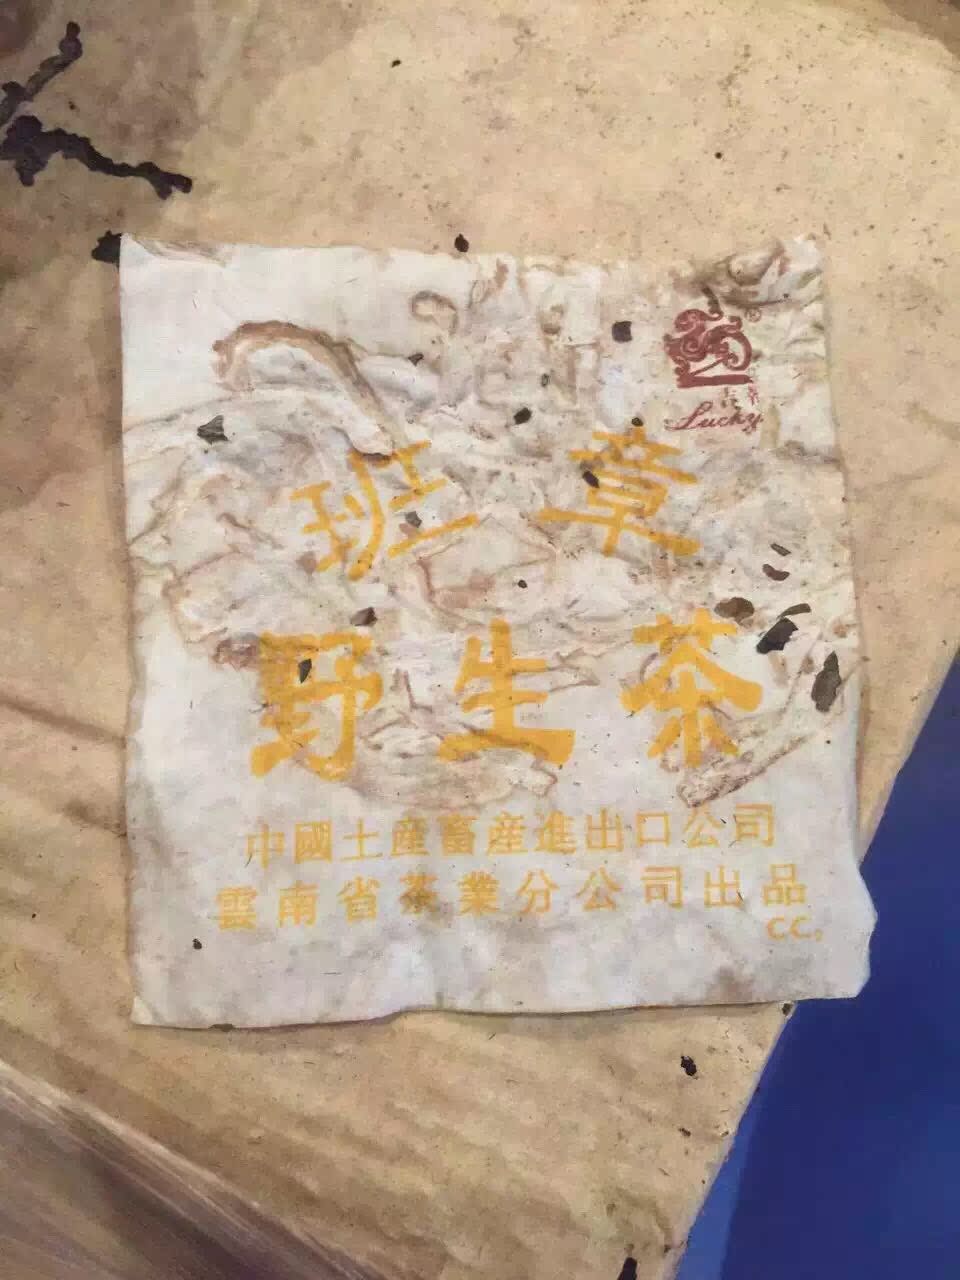 Lucky
班章
野生茶
中國土産畜産進出口公司
雲南省茶業分公司出品
CC,